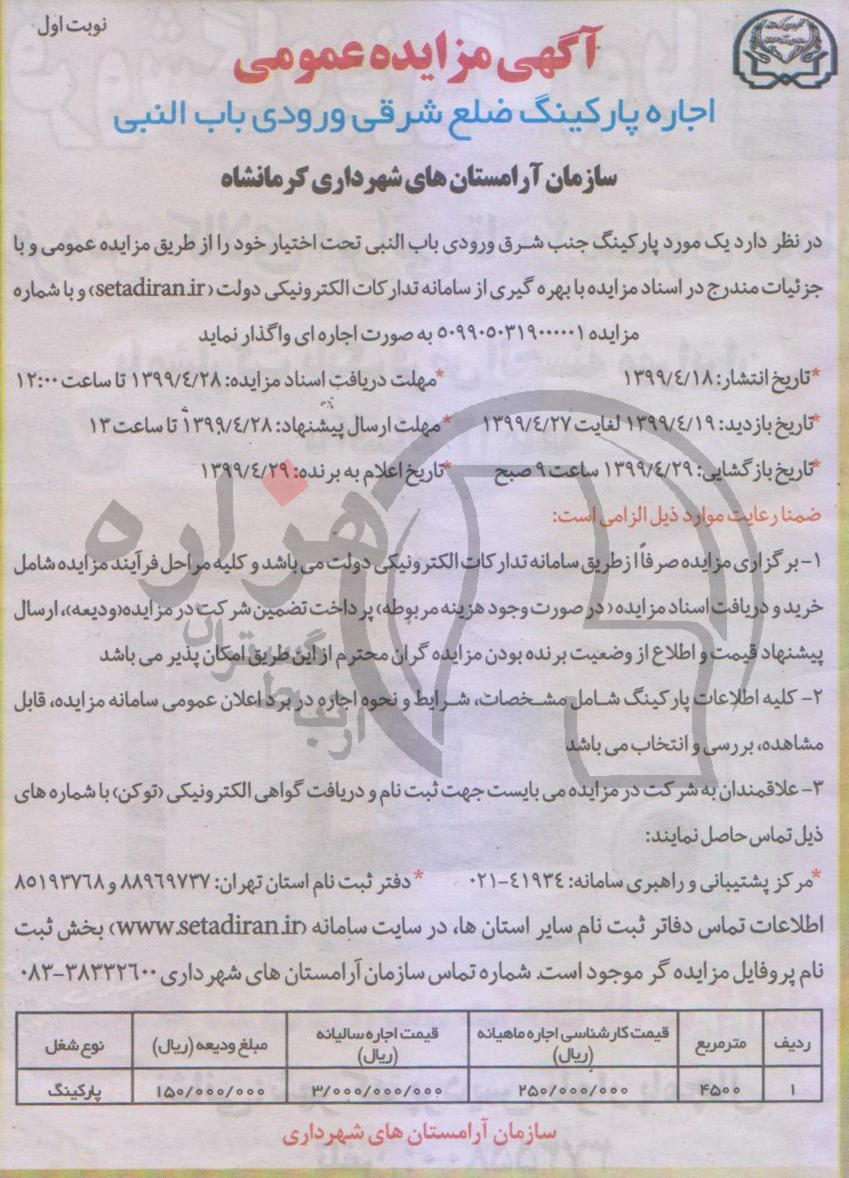 نوبت اول
آگهی مزایده عمومی
اجاره پارکینگ ضلع شرقی ورودی باب النبی
سازمان آرامستان های شهرداری کرمانشاه
در نظر دارد یک مورد پارکینگ جنب شرق ورودی باب النبی تحت اختیار خود را از طریق مزایده عمومی و با
جزئیات مندرج در اسناد مزایده با بهره گیری از سامانه تدارکات الکترونیکی دولت (setadiran.ir) و با شماره
مزایده ۵۰۹۹۰۵۰۳۱۹۰۰۰۰۰۱ به صورت اجاره ای واگذار نماید
*تاریخ انتشار: ۱۳۹۹/٤/۱۸ *مهلت دریافت اسناد مزایده: ۱۳۹۹/٤/۲۸ تا ساعت ۱۲:۰۰
*تاریخ بازدید: ۱۳۹۹/٤/۱۹ لغایت ۱۳۹۹/٤/۲۷ *مهلت ارسال پیشنهاد: ۱۳۹۹/٤/۲۸ تا ساعت ۱۳
*تاریخ بازگشایی: ۱۳۹۹/٤/۲۹ ساعت ۹ صبح *تاریخ اعلام به برنده: ۱۳۹۹/٤/۲۹
ضمنا رعایت موارد ذیل الزامی است:
۱- برگزاری مزایده صرفاً از طریق سامانه تدارکات الکترونیکی دولت می باشد و کلیه مراحل فرآیند مزایده شامل
خرید و دریافت اسناد مزایده (در صورت وجود هزینه مربوطه) پرداخت تضمین شرکت در مزایده(ودیعه)، ارسال
پیشنهاد قیمت و اطلاع از وضعیت برنده بودن مزایده گران محترم از این طریق امکان پذیر می باشد
۲- کلیه اطلاعات پارکینگ شامل مشخصات، شرایط و نحوه اجاره در برد اعلان عمومی سامانه مزایده، قابل
مشاهده، بررسی و انتخاب می باشد
۳- علاقمندان به شرکت در مزایده می بایست جهت ثبت نام و دریافت گواهی الکترونیکی (توکن) با شماره های
ذیل تماس حاصل نمایند:
*مرکز پشتیبانی و راهبری سامانه: ٤۱۹۳٤-۰۲۱ *دفتر ثبت نام استان تهران: ۸۸۹٦۹۷۳۷ و ۸۵۱۹۳۷٦۸
اطلاعات تماس دفاتر ثبت نام سایر استان ها، در سایت سامانه (www.setadiran.ir) بخش ثبت
نام پروفایل مزایده گر موجود است. شماره تماس سازمان آرامستان های شهرداری ۳۸۳۳۲٦۰۰-۰۸۳
ردیف مترمربع قیمت کارشناسی اجاره ماهیانه (ریال) قیمت اجاره سالیانه (ریال) مبلغ ودیعه (ریال) نوع شغل
۱ ۴۵۰۰ ۲۵۰/۰۰۰/۰۰۰ ۳/۰۰۰/۰۰۰/۰۰۰ ۱۵۰/۰۰۰/۰۰۰ پارکینگ
سازمان آرامستان های شهرداری
هزاره
گستران
ارتباط